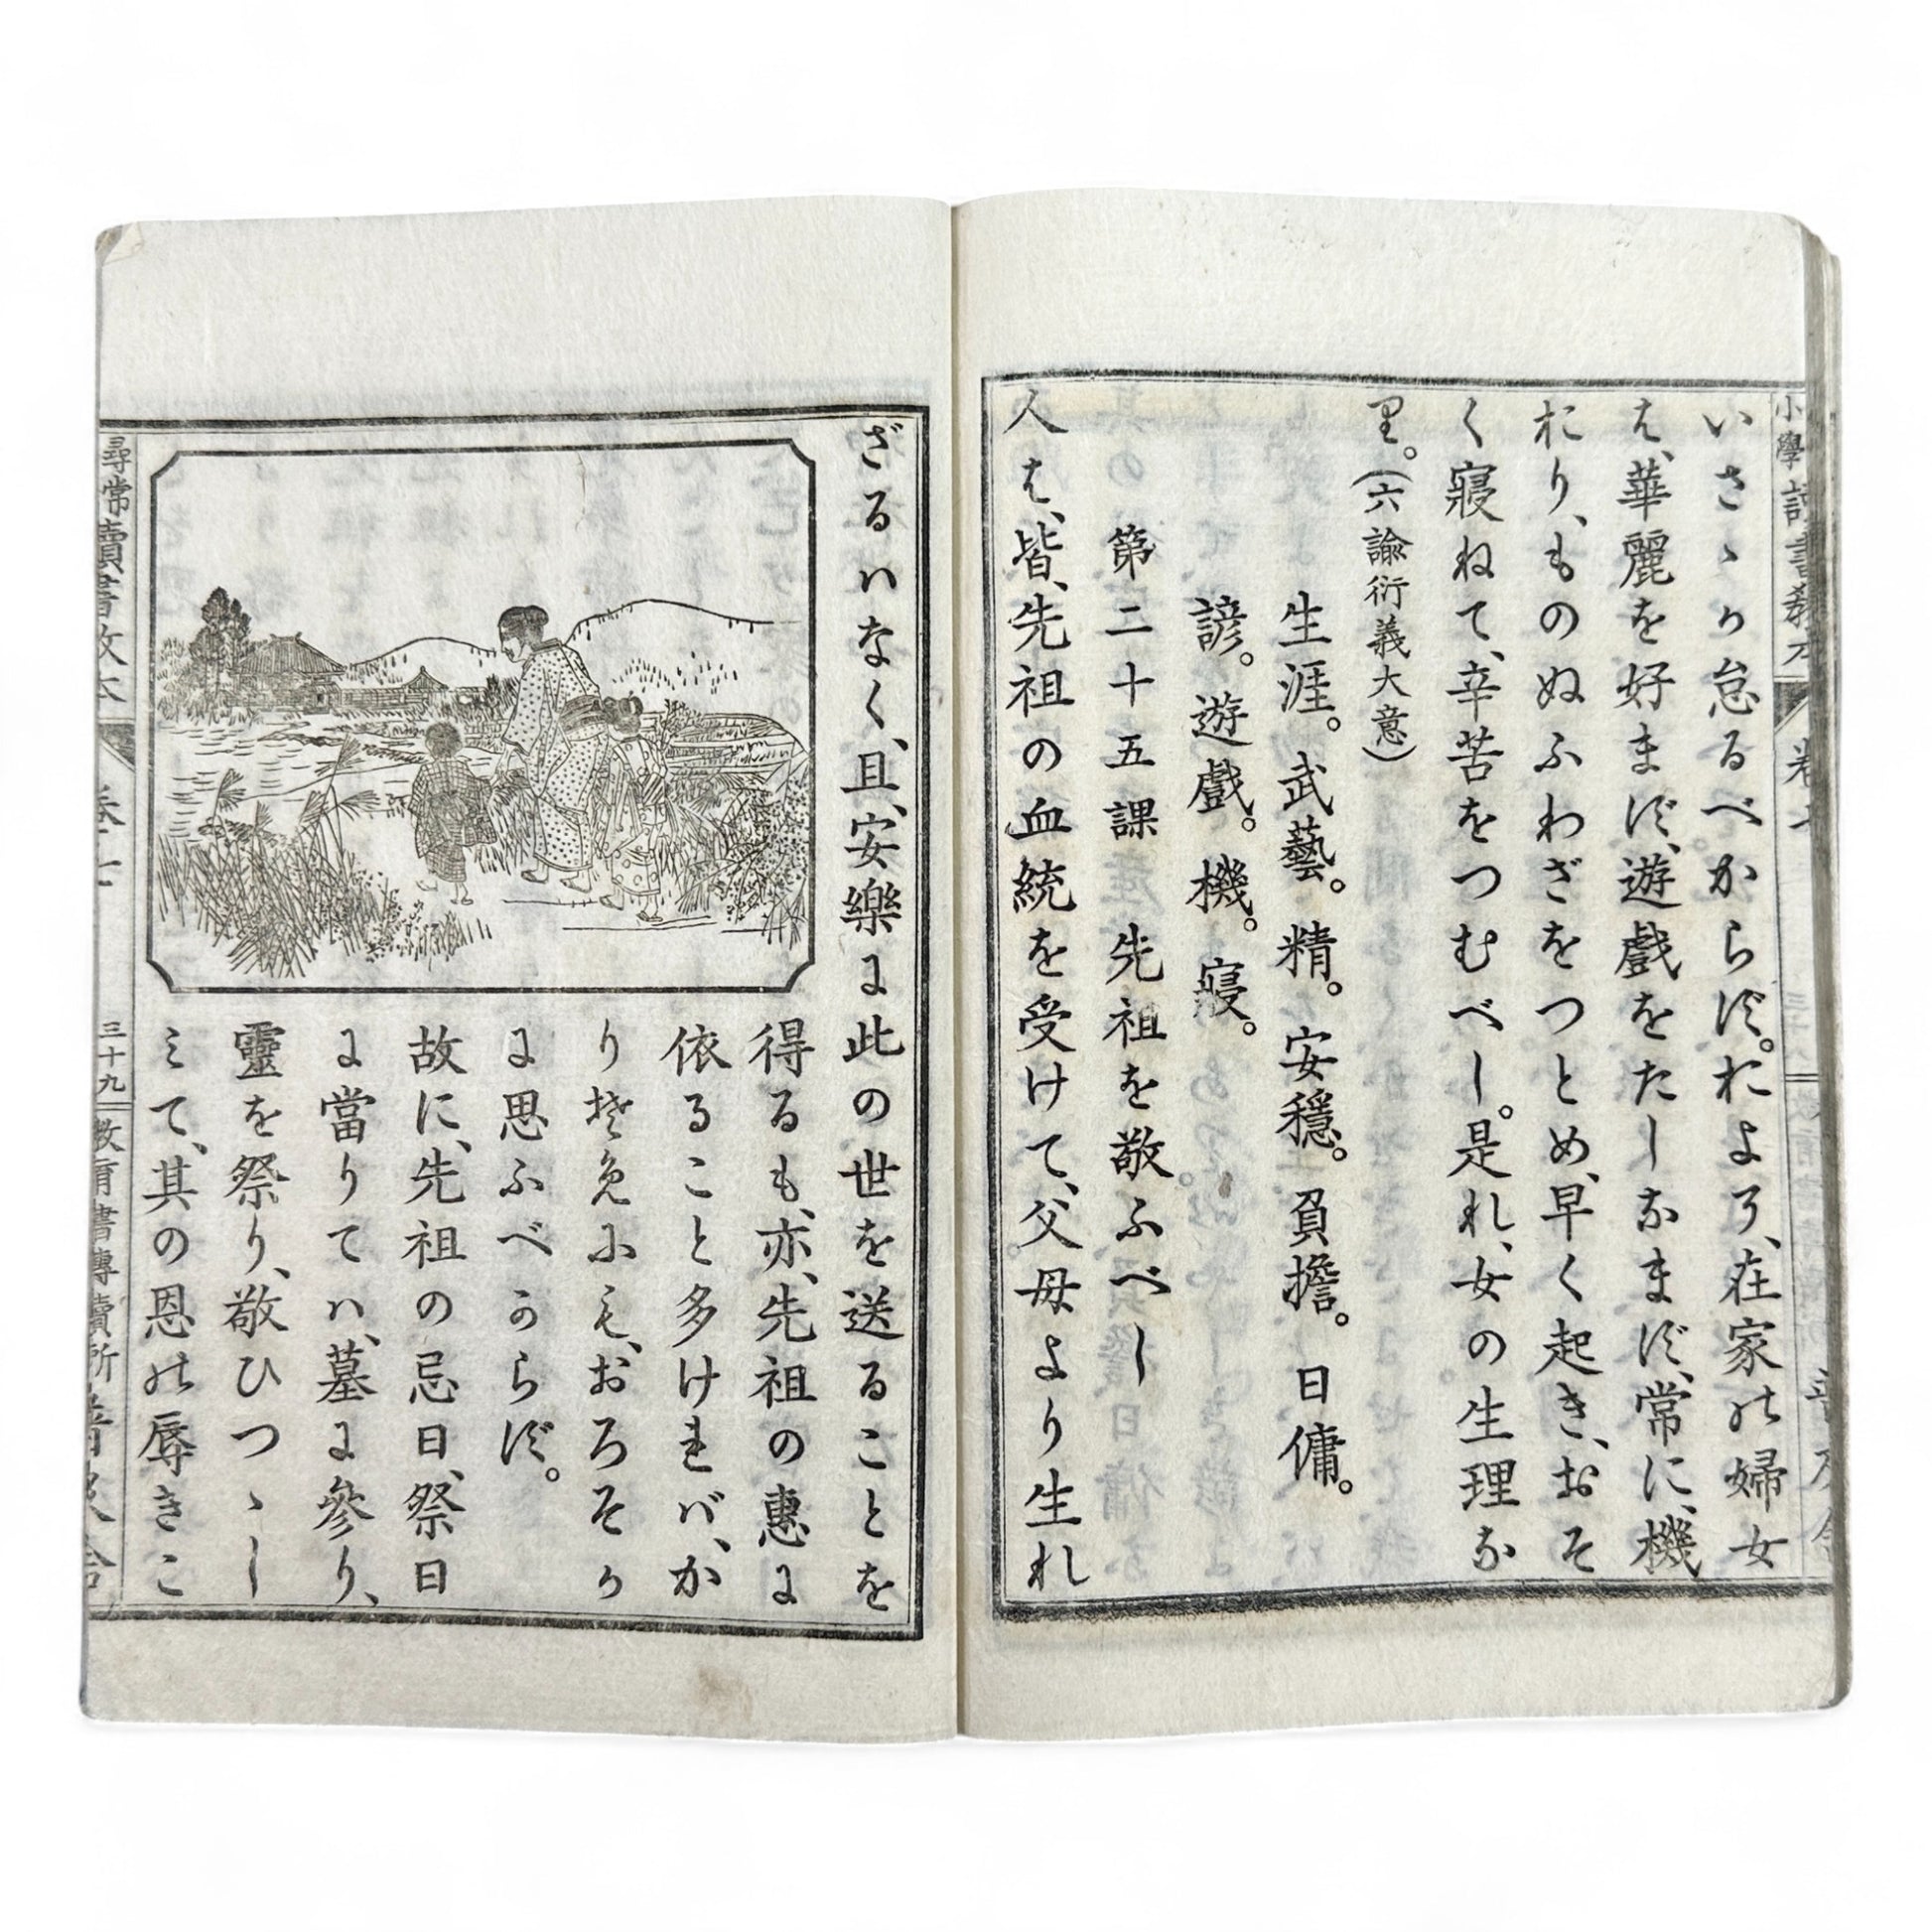 いさゝか怠るべからず。およそ、在家の婦女
は、華麗を好まず、遊戲をたしなまず、常に、機
おり、ものぬふわざをつとめ、早く起き、おそ
く寢ねて、辛苦をつむべし。是れ、女の生理な
里。(六諭衍義大意)
生涯。武藝。精。安穩。負擔。日傭。
諺。遊戲。機。寢。
第二十五課 先祖を敬ふべし
人は、皆、先祖の血統を受けて、父母より生れ
ざるハなく、且、安樂に此の世を送ることを
得るも、亦、先祖の惠に
依ること多ければ、か
りそめにも、おろそか
に思ふべからず。
故に、先祖の忌日、祭日
に當りてハ、墓に參り、
靈を祭り、敬ひつゝし
みて、其の恩の辱きこ
尋常讀書教本
卷七
三十九
教育書專賣所
普及舍